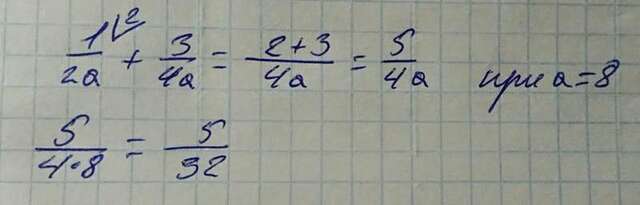 1/2a √2 + 3/4a = 2+3/4a = 5/4a при a=8
5/4·8 = 5/32